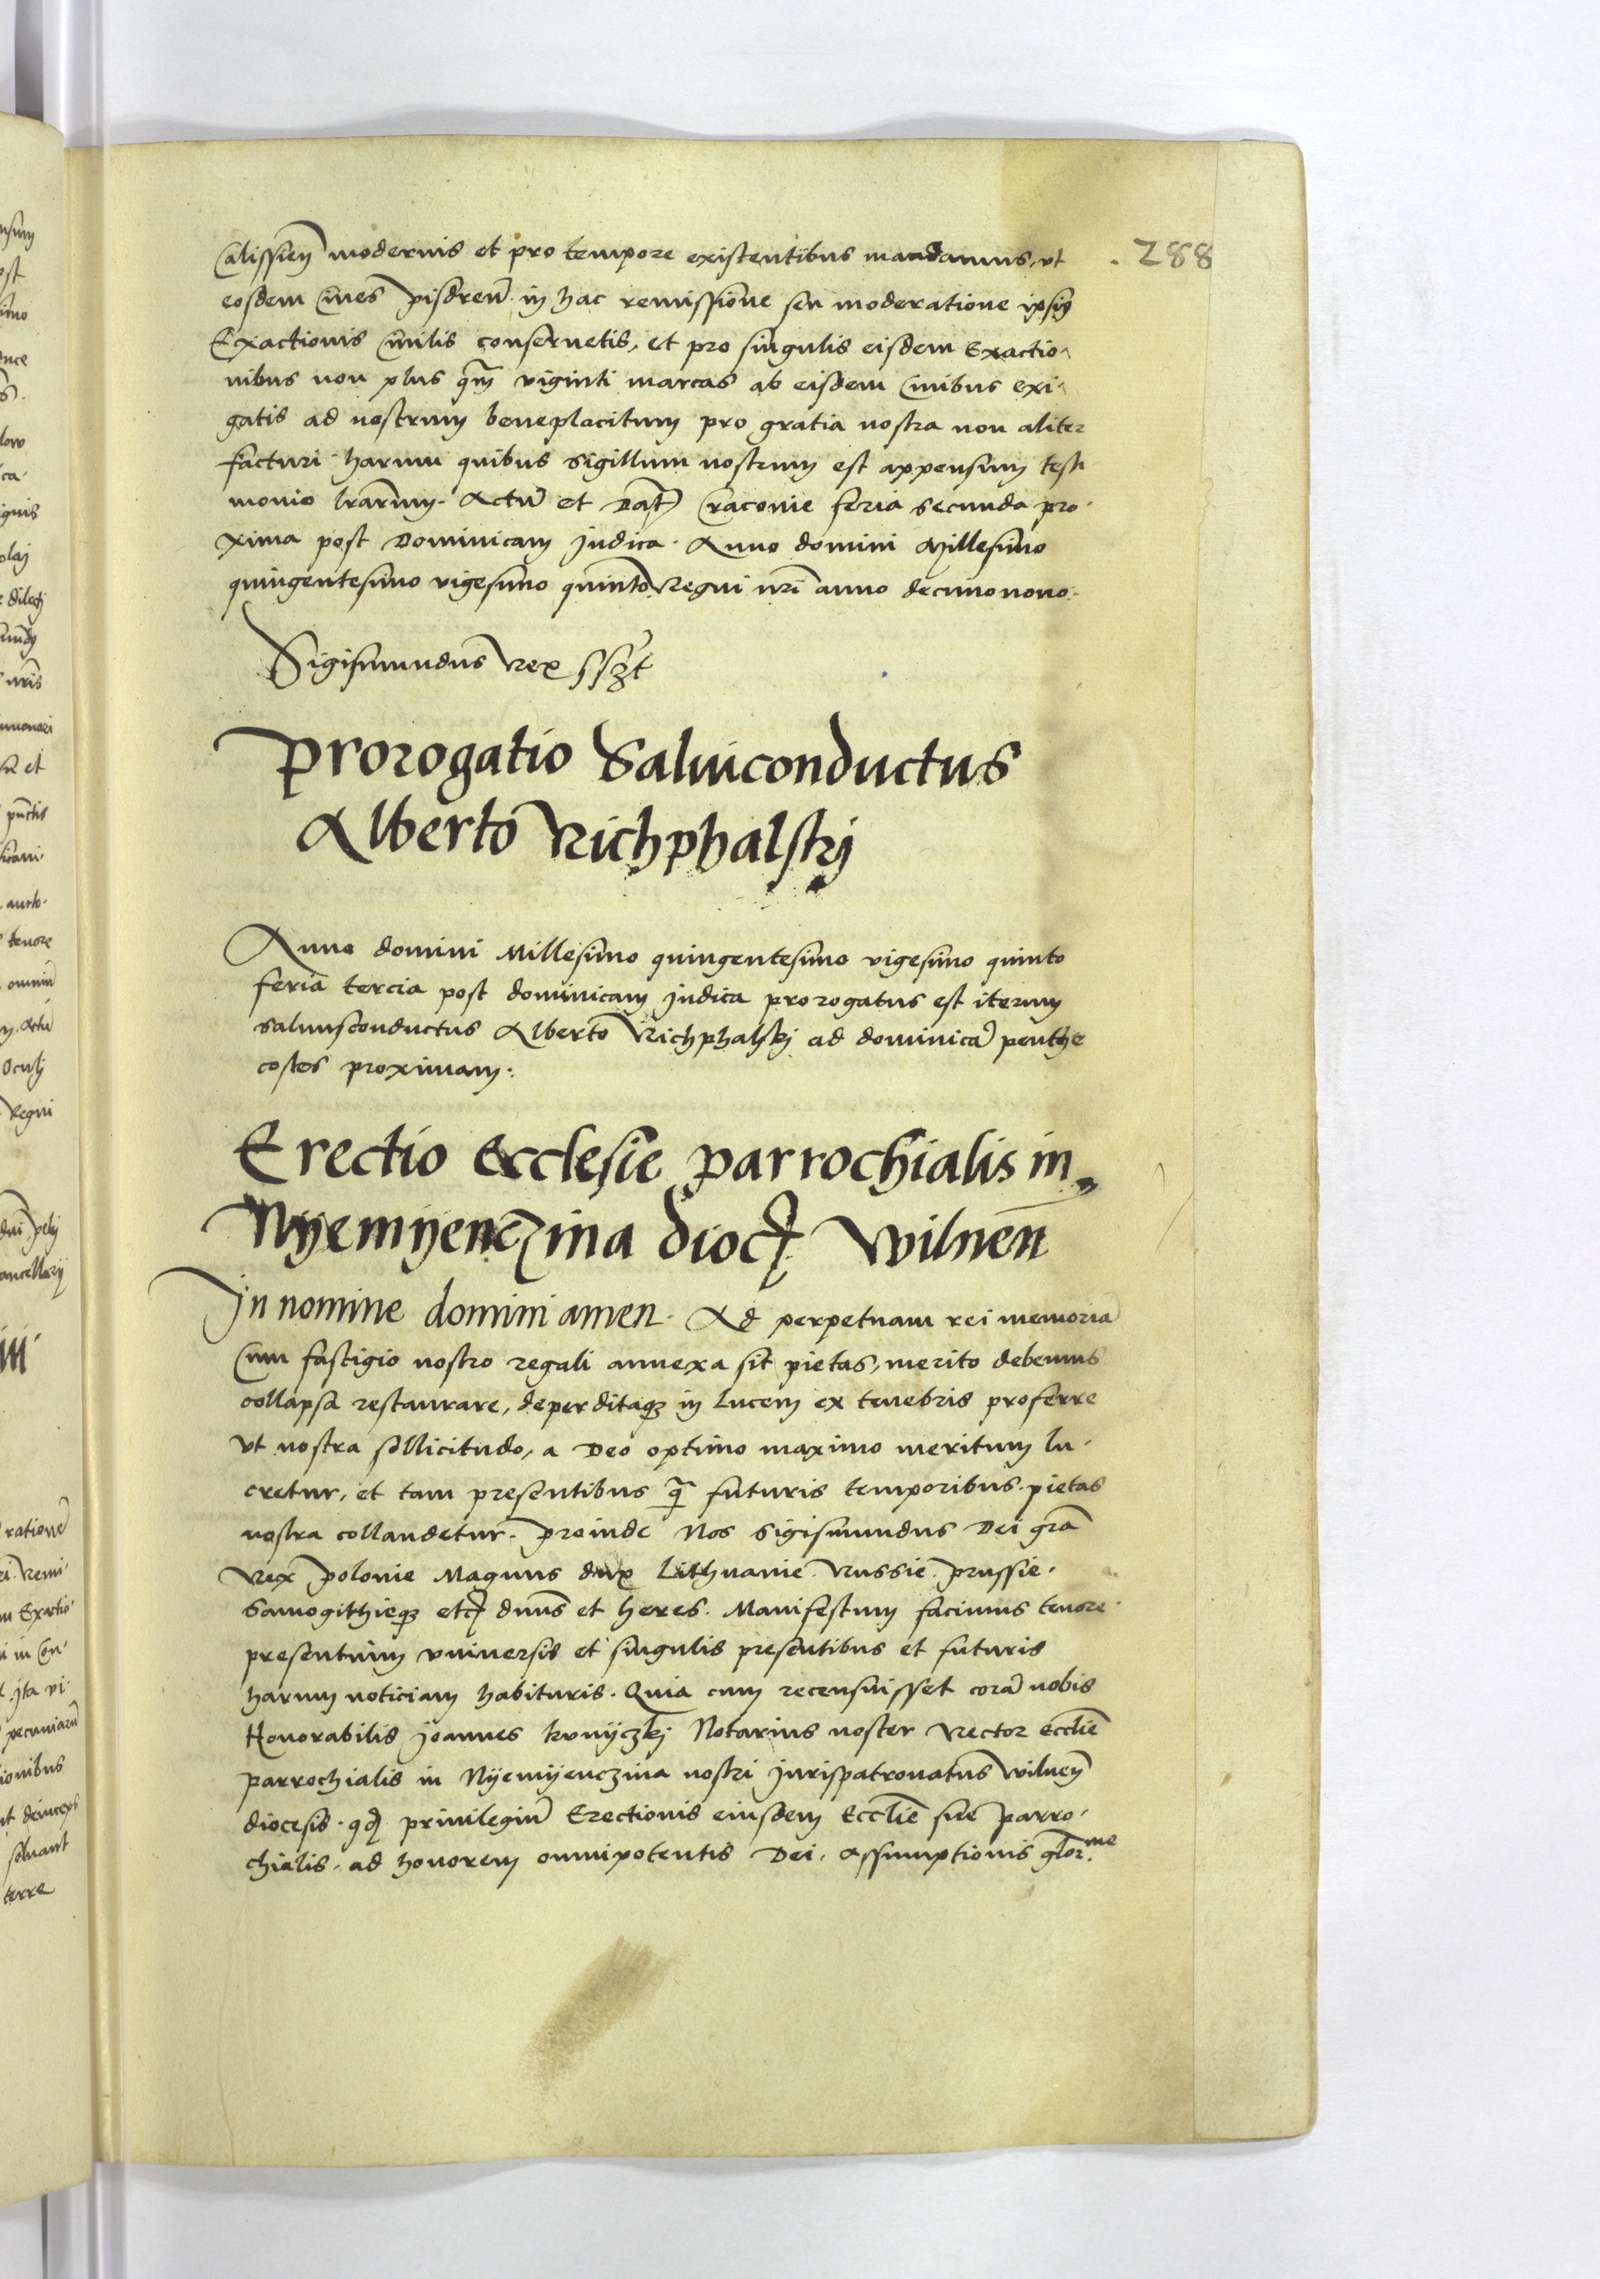 288
Calissien̄ modernis et pro tempore existentibus mandamus, vt
eosdem Ciues pisdren̄ in hac remissione seu moderatione ipsius
Exactionis Ciuilis conseruetis, et pro singulis eisdem Exactio-
nibus non plus qm̄ viginti marcas ab eisdem Ciuibus exi-
gatis ad nostrum beneplacitum pro gratia nostra non aliter
facturi harum quibus sigillum nostrum est appensum testi
monio lrarum. Actū et Dat̄ Craconie feria secunda pro-
xima post Dominicam Judica. Anno domini Millesimo
quingentesimo vigesimo quinto Regni nrī anno decimonono.
Sigismundus Rex sszt
Prorogatio Saluiconductus
Alberto Richphalskj
Anno domini Millesimo quingentesimo vigesimo quinto
feria tercia post dominicam Judica prorogatus est iterum
saluusconductus Alberto Richphalskj ad dominicā penthe
costes proximam.
Erectio Ecclesie parrochialis in
Nyemyenczina dioc̄ wilnen̄
In nomine domini amen. Ad perpetuam rei memoriā
Cum fastigio nostro regali annexa sit pietas, merito debemus
collapsa restaurare, deperditaqꝫ in lucem ex tenebris proferre
vt nostra sollicitudo, a Deo optimo maximo meritum lu-
cretur, et tam presentibus q̄ futuris temporibus pietas
nostra collaudetur. Proinde Nos Sigismundus Dei grā
Rex polonie Magnus dux Lithuanie Russie prussie.
Samogithieqꝫ etc̄ dnūs et heres. Manifestum facimus tenore
presentium vniuersis et singulis presentibus et futuris
harum noticiam habituris. Quia cum recensuisset corā nobis
Honorabilis Joannes kunyczkj Notarius noster Rector ecclīe
parrochialis in Nyemyenczina nostri Jurispatronatus wilnen̄
diocesis. qd̄ priuilegiū Erectionis eiusdem Ecclīe sue parro-
chialis, ad honorem omnipotentis Dei, Assumptionis glor.me